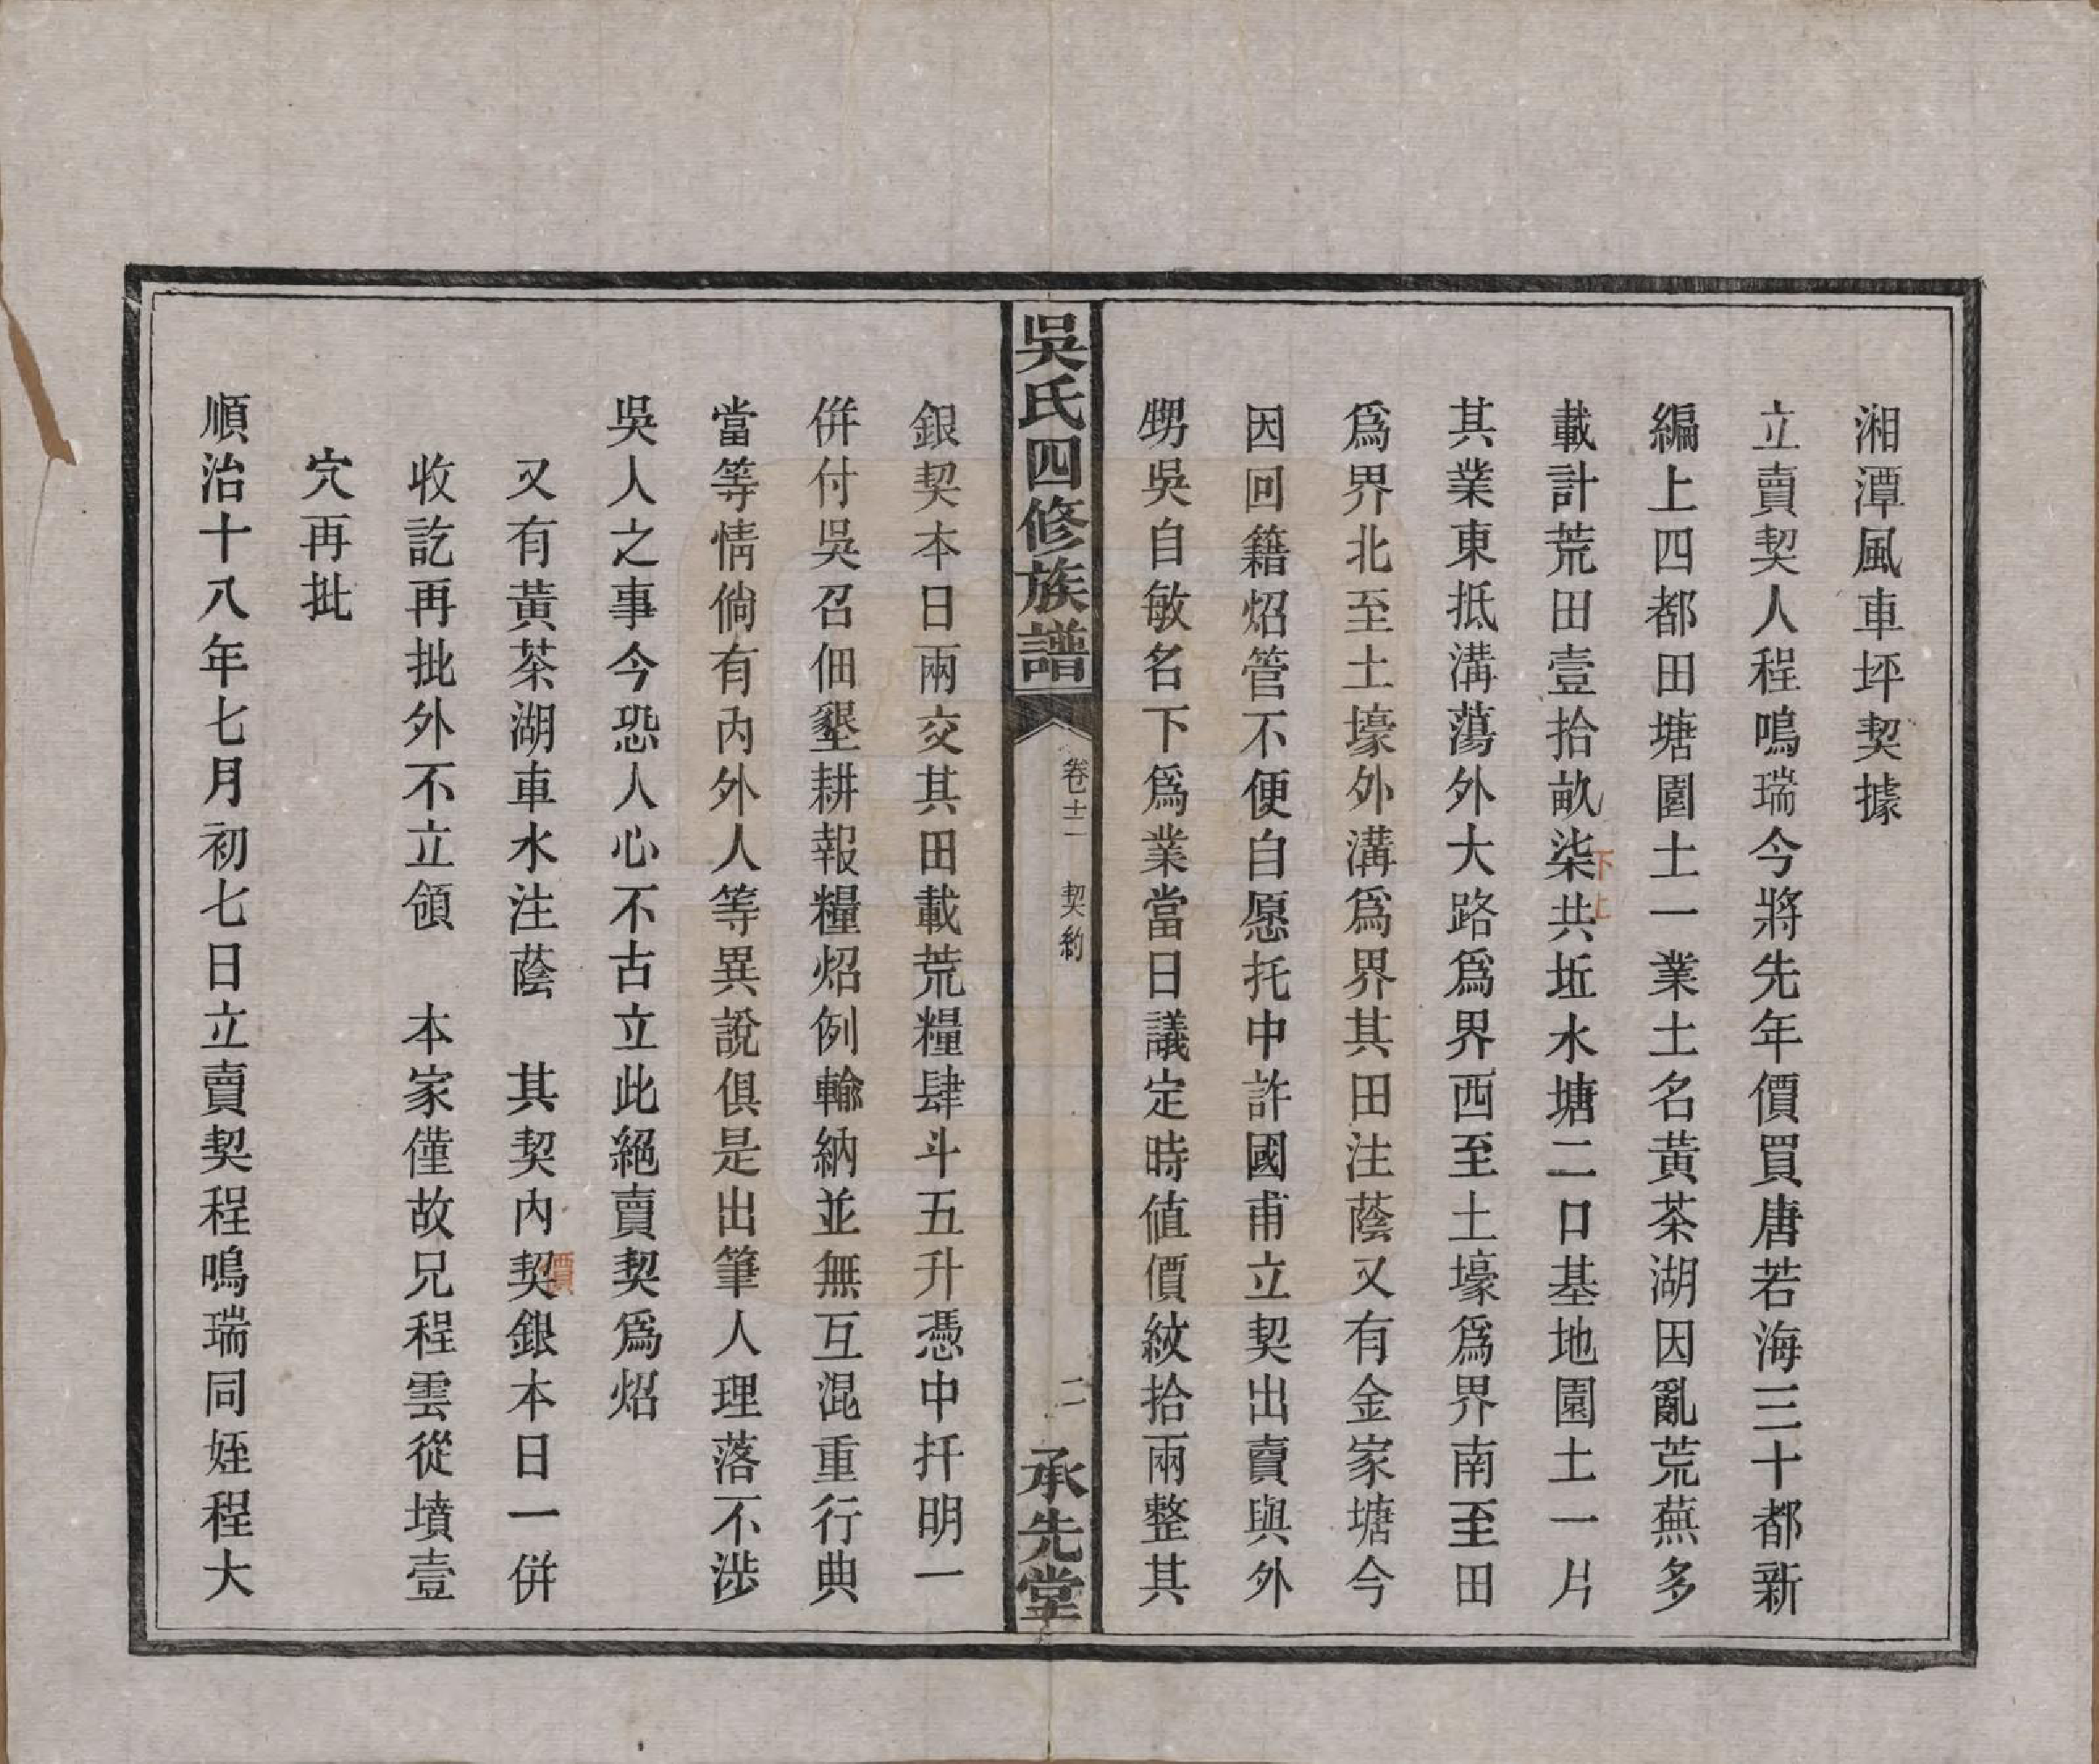 湘潭風車坪契據
立賣契人程鳴瑞今將先年價買唐若海三十都新
編上四都田塘園土一業土名黃茶湖因亂荒蕪多
載計荒田壹拾畝柒共坵水塘二口基地園土一片
下上
其業東抵溝蕩外大路爲界西至土壕爲界南至田
爲界北至土壕外溝爲界其田注蔭又有金家塘今
因回籍炤管不便自愿托中許國甫立契出賣與外
甥吳自敏名下爲業當日議定時値價紋拾兩整其
吳氏四修族譜
卷十二 契約
二
承先堂
銀契本日兩交其田載荒糧肆斗五升憑中扦明一
倂付吳召佃墾耕報糧炤例輸納並無互混重行典
當等情倘有內外人等異說俱是出筆人理落不涉
吳人之事今恐人心不古立此絕賣契爲炤
又有黃茶湖車水注蔭 其契內契銀本日一倂
價
收訖再批外不立領 本家僅故兄程雲從墳壹
穴再批
順治十八年七月初七日立賣契程鳴瑞同姪程大